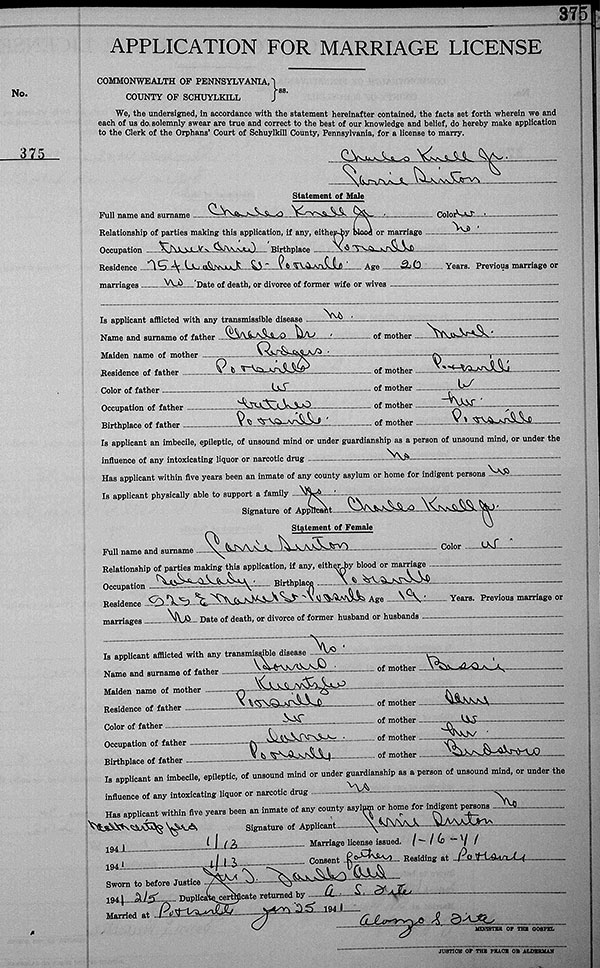 375
APPLICATION FOR MARRIAGE LICENSE
No.
COMMONWEALTH OF PENNSYLVANIA,
COUNTY OF SCHUYLKILL
ss.
We, the undersigned, in accordance with the statement hereinafter contained, the facts set forth wherein we and
each of us do solemnly swear are true and correct to the best of our knowledge and belief, do hereby make application
to the Clerk of the Orphans' Court of Schuylkill County, Pennsylvania, for a license to marry.
375
Charles Knell Jr.
Statement of Male
Full name and surname Charles Knell Jr. Color w.
Relationship of parties making this application, if any, either by blood or marriage no.
Occupation Birthplace Pottsville
Residence 754 Walnut St- Pottsville Age 20 Years. Previous marriage or
marriages no Date of death, or divorce of former wife or wives
Is applicant afflicted with any transmissible disease no.
Name and surname of father Charles Sr. of mother Mabel.
Maiden name of mother Rodgers.
Residence of father Pottsville of mother Pottsville
Color of father w of mother w
Occupation of father butcher of mother hw
Birthplace of father Pottsville of mother Pottsville
Is applicant an imbecile, epileptic, of unsound mind or under guardianship as a person of unsound mind, or under the
influence of any intoxicating liquor or narcotic drug no
Has applicant within five years been an inmate of any county asylum or home for indigent persons no
Is applicant physically able to support a family yes.
Signature of Applicant Charles Knell Jr.
Statement of Female
Full name and surname Color w.
Relationship of parties making this application, if any, either by blood or marriage
Occupation Saleslady. Birthplace Pottsville
Residence 525 E Market St- Pottsville Age 19. Years. Previous marriage or
marriages no Date of death, or divorce of former husband or husbands
Is applicant afflicted with any transmissible disease no.
Name and surname of father Howard of mother Bessie
Maiden name of mother
Residence of father Pottsville of mother
Color of father w of mother w
Occupation of father of mother hw
Birthplace of father Pottsville of mother
Is applicant an imbecile, epileptic, of unsound mind or under guardianship as a person of unsound mind, or under the
influence of any intoxicating liquor or narcotic drug no
Has applicant within five years been an inmate of any county asylum or home for indigent persons no
Signature of Applicant
194 1/13 Marriage license issued. 1-16-41
194 1/13 Consent father Residing at Pottsville
Sworn to before Justice
1941 2/5 Duplicate certificate returned by A. S.
Married at Pottsville Jan 25 1941
Alonzo S
MINISTER OF THE GOSPEL
JUSTICE OF THE PEACE OR ALDERMAN